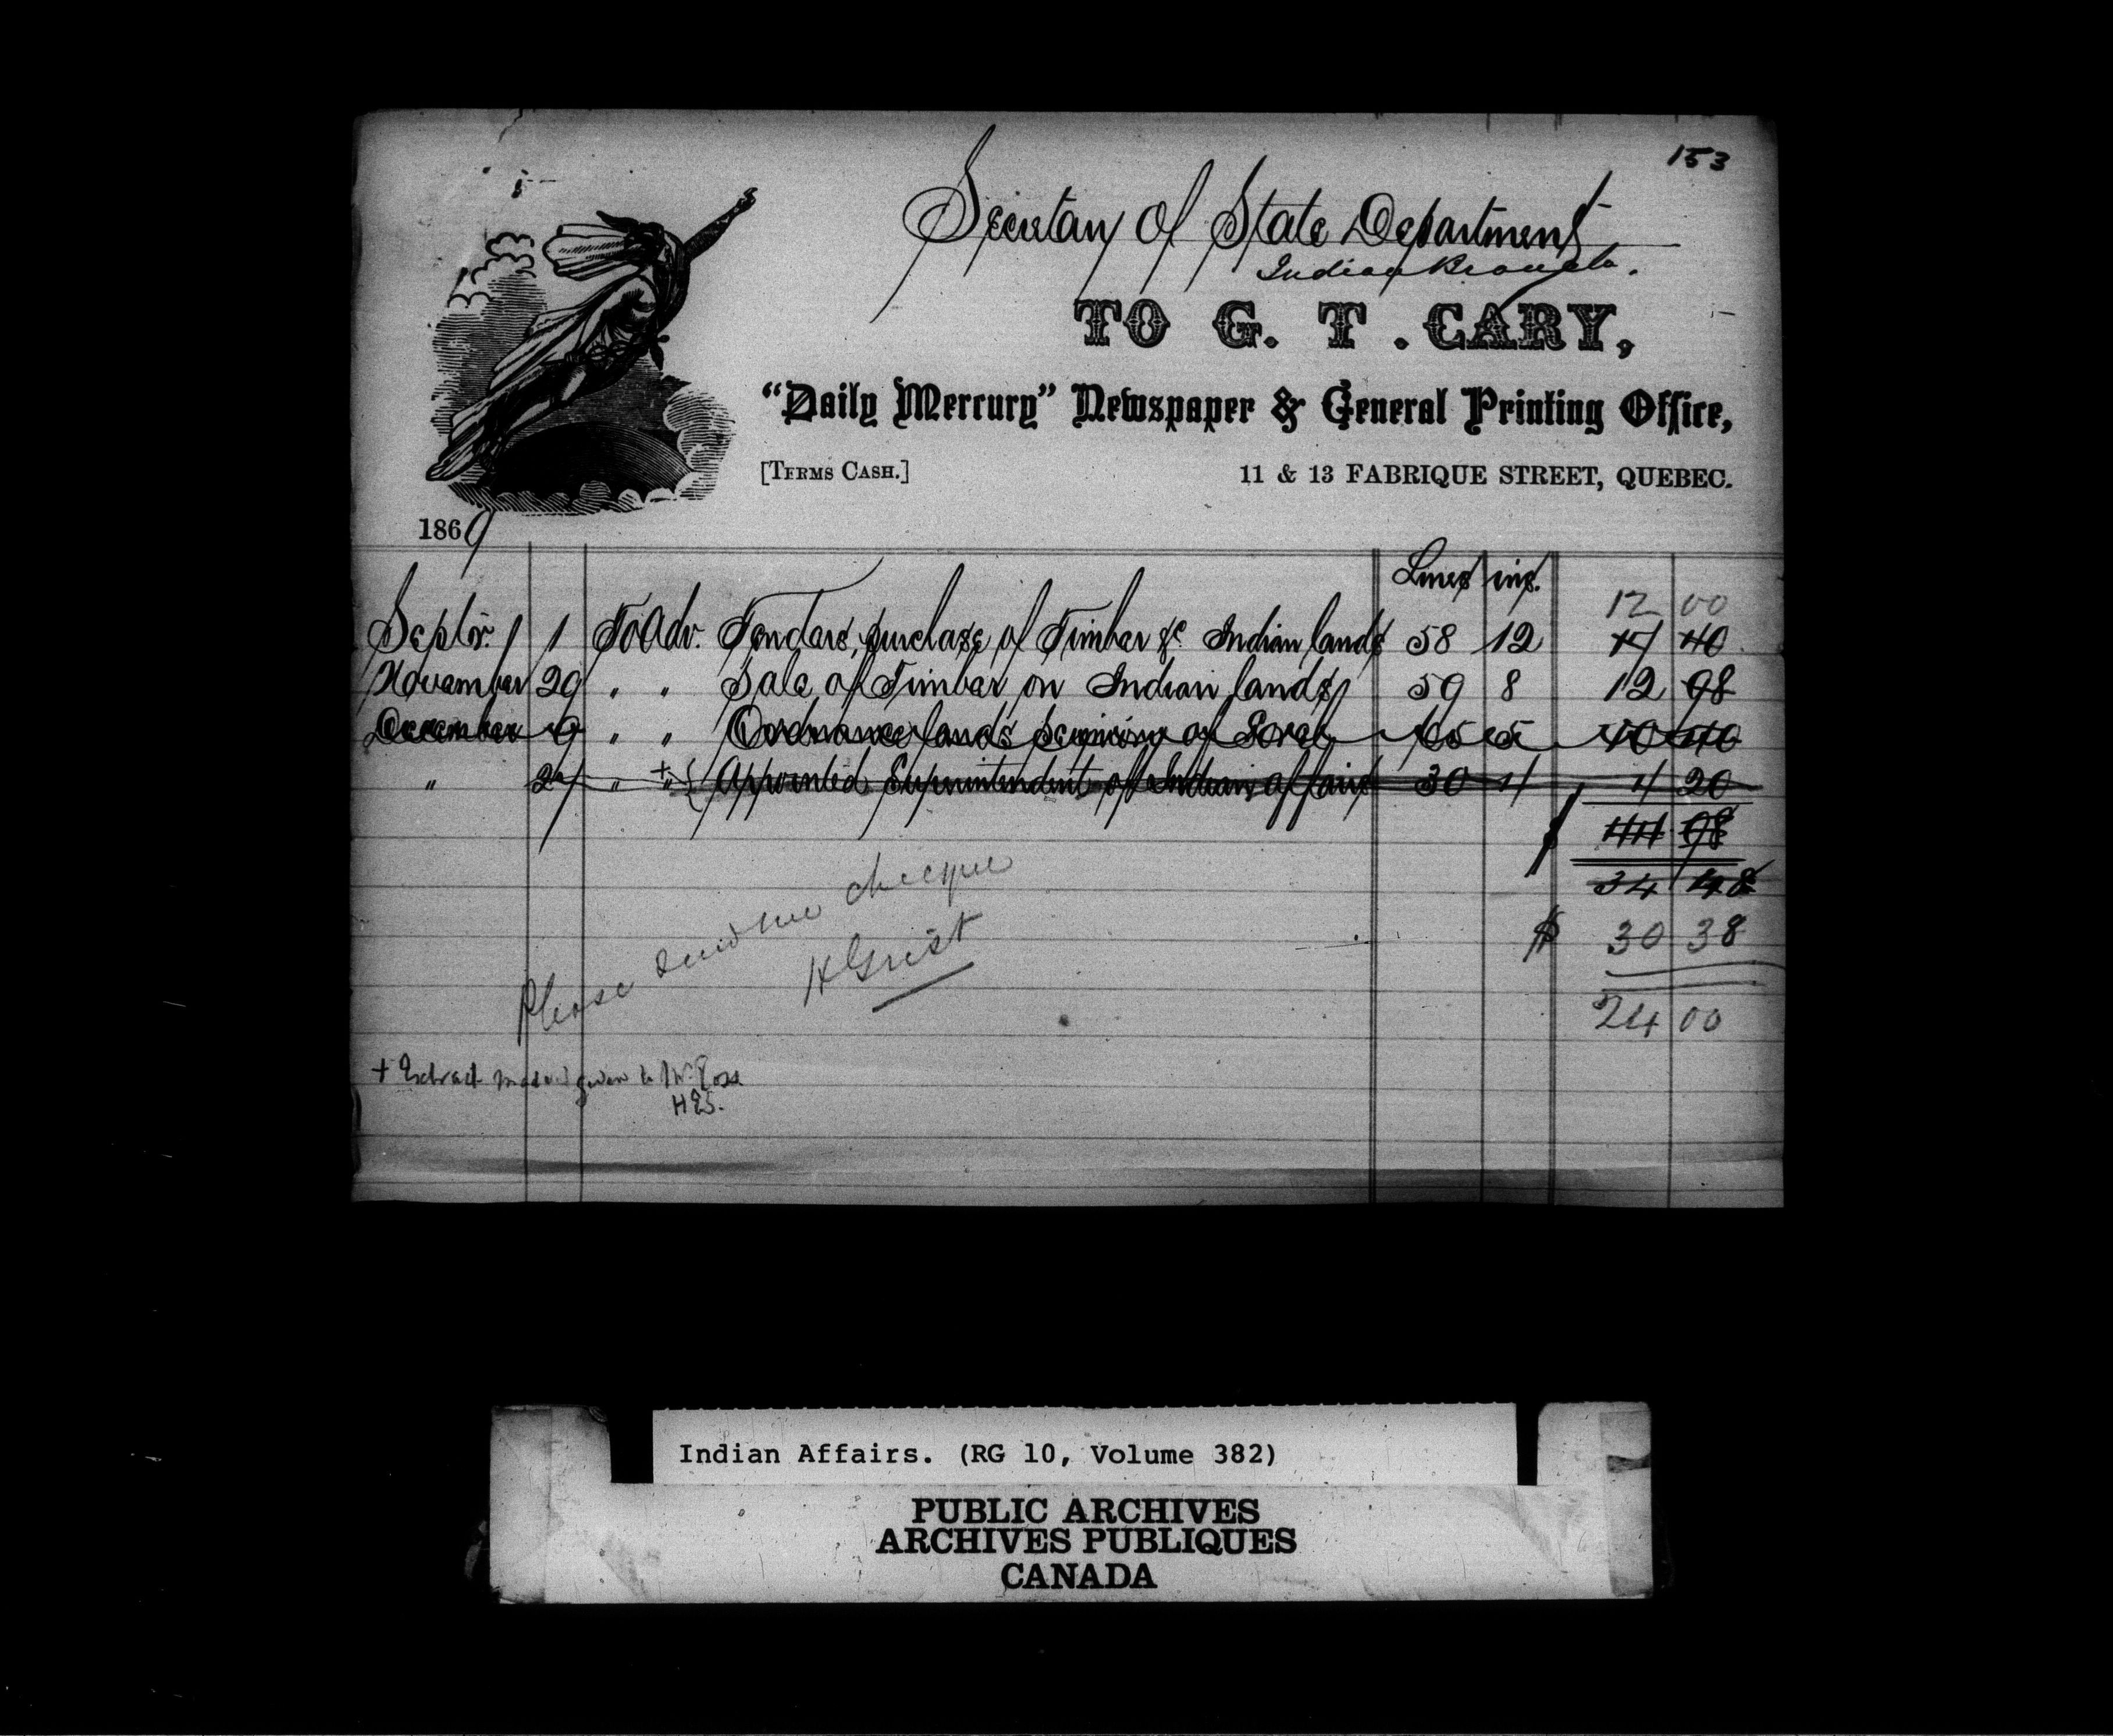 153
Secretary of State Department
Indian Branch.
TO G. T. CARY,
“Daily Mercury” Newspaper & General Printing Office,
[TERMS CASH.] 11 & 13 FABRIQUE STREET, QUEBEC.
1869
Lines ins.
12 00
Septbr. 1 To Adv. Tenders, purchase of Timber &c Indian lands 58 12 17 40
November 29 " " Sale of Timber on Indian lands 59 8 12 98
December 9 " " Ordnance lands Seigniory of Sorel 65 5 10 40
" 27 " + " { Appointed Superintendent of Indian affairs 30 4 4 20
$ 44 98
34 48
$ 30 38
24 00
Please send me cheque
H Grist
+ Extract made & given to Mr. Ross
Indian Affairs. (RG 10, Volume 382)
PUBLIC ARCHIVES
ARCHIVES PUBLIQUES
CANADA